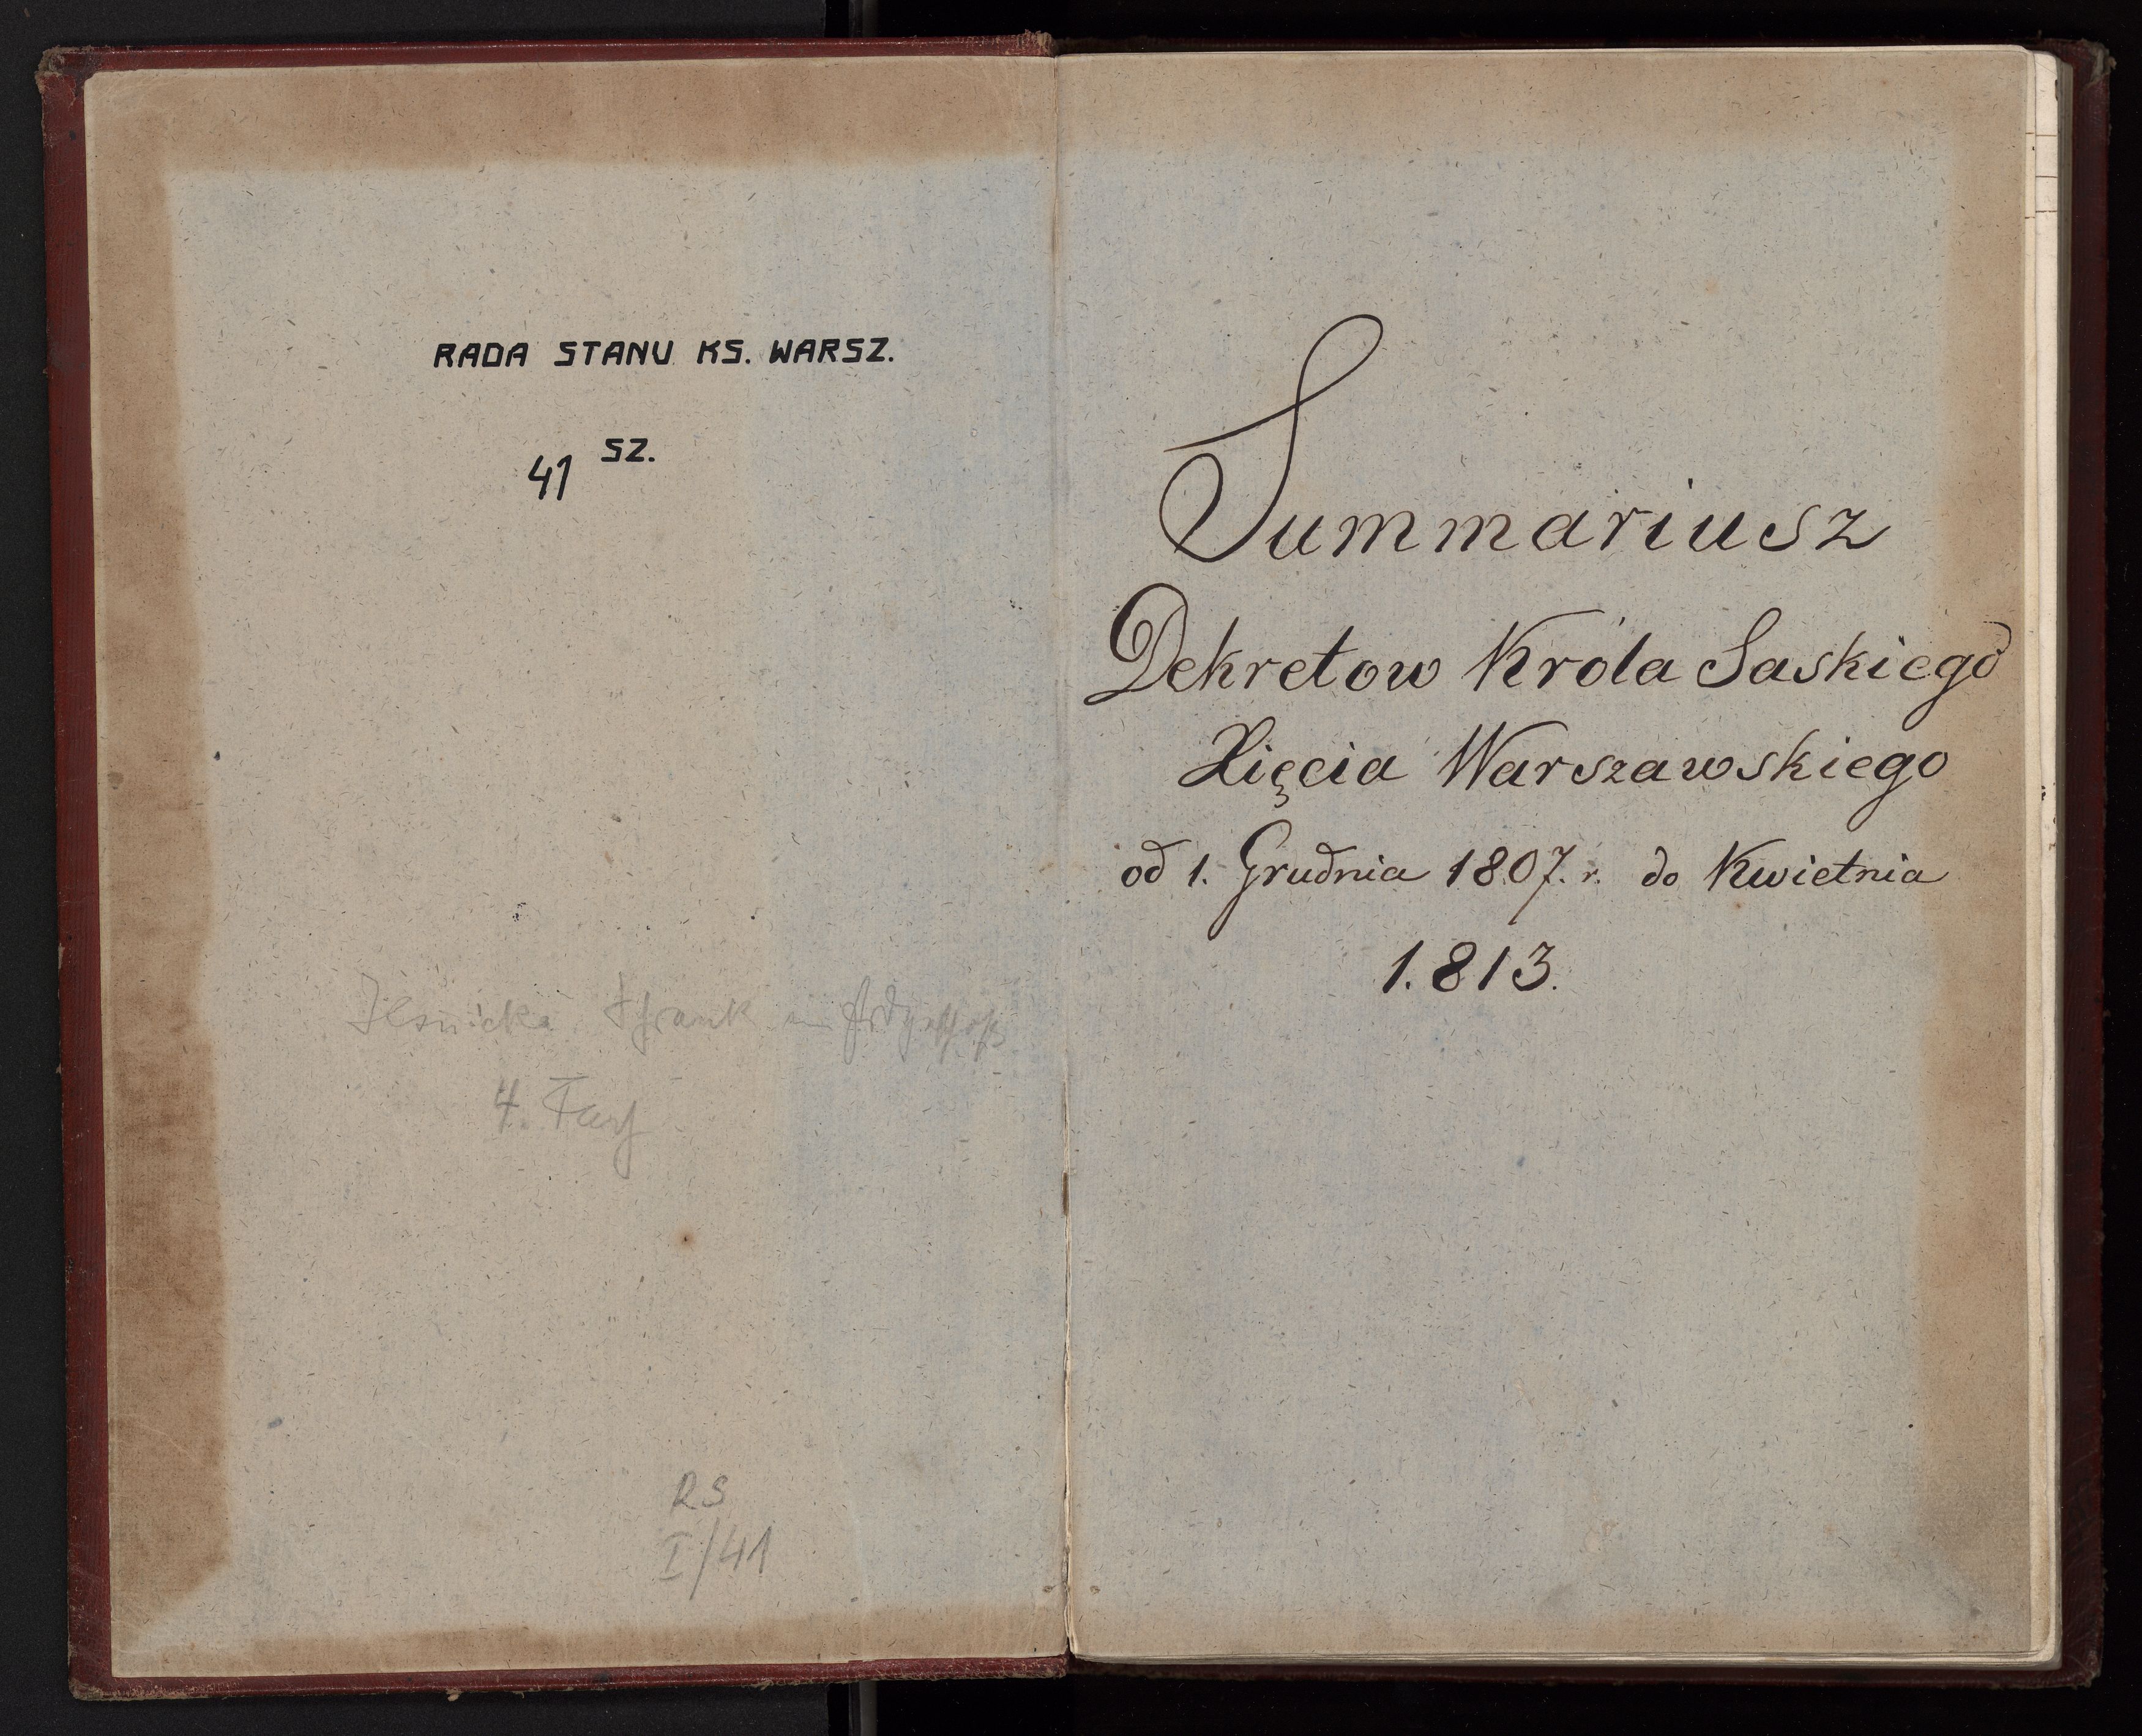 RADA STANU KS. WARSZ.
41 SZ.
4. Fach
RS
I/41
Summariusz
Dekretow Króla Saskiego
Xięcia Warszawskiego
od 1. Grudnia 1807. r. do Kwietnia
1.813.